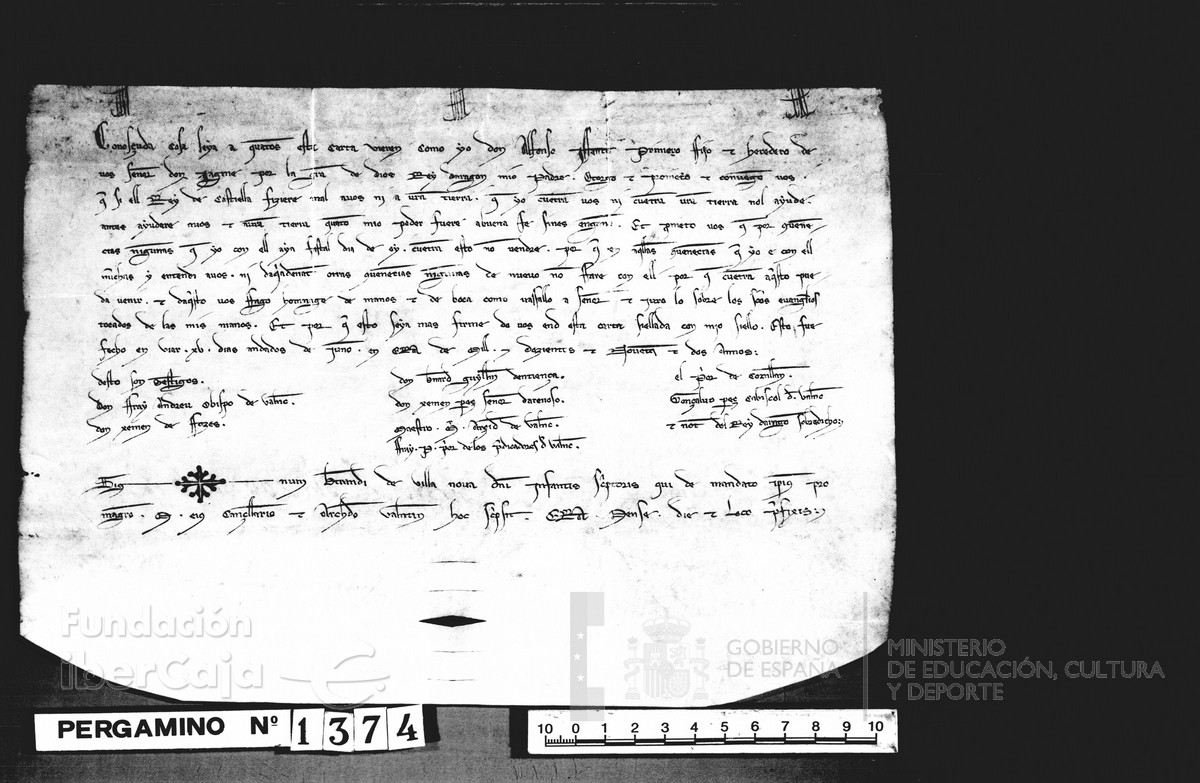 Conosçuda cosa seya a quantos esta carta vieren como yo don Alfonso Iffante primero fijo et heredero de
vos senor don Jacme por la gra de dios Rey daragon mio padre. Otorgo et prometo et convengo vos.
que si ell Rey de Castiella fiziere mal avos ni a vra tierra. que yo cuentra vos ni cuentra vra tierra nol ayude.
antes ayudere avos et vra tierra quanto mio poder fuere abuena fe sines engan. Et prometo vos que por
que yo con ell aya fastal dia de oy. cuentra esto no vendre. por que yo e con ell
y entendi avos. ni otras de nuevo no ffare con ell por que cuentra aqsto pue
da venir. et daqsto vos ffago homnage de manos et de boca como vassallo a senor et juro lo sobre los scos evangelios
tocados de las mis manos. Et por que esto seya mas firme do vos end esta carta siellada con mio siello. Esto fue
fecho en .xv. dias andados de junio. en ERA de Mill. y Dozientos et Noventa et dos Annos:
desto son testigos.
don ffray Andreu Obispo de valnc.
don xemen de ffozes.
don bnard guyllm dentença.
don xemen peres senor darenoso.
Maestro . M . de valnc.
ffray . P . pr de los pdicadores d valnc.
el por de
Gonçalvo peres Cabiscol d valnc
et not del Rey daragon sobredicho:
Sig num btrandi de villa nova dni Infantis scptoris qui de mandato ipius pro
magro . M . eius Cançellario et Archdo valentin hoc scpsit . ERA . Mense . die et Loco prefixis:
Fundación
iberCaja
GOBIERNO
DE ESPAÑA
MINISTERIO
DE EDUCACIÓN, CULTURA
Y DEPORTE
PERGAMINO Nº 1374
10 0 1 2 3 4 5 6 7 8 9 10